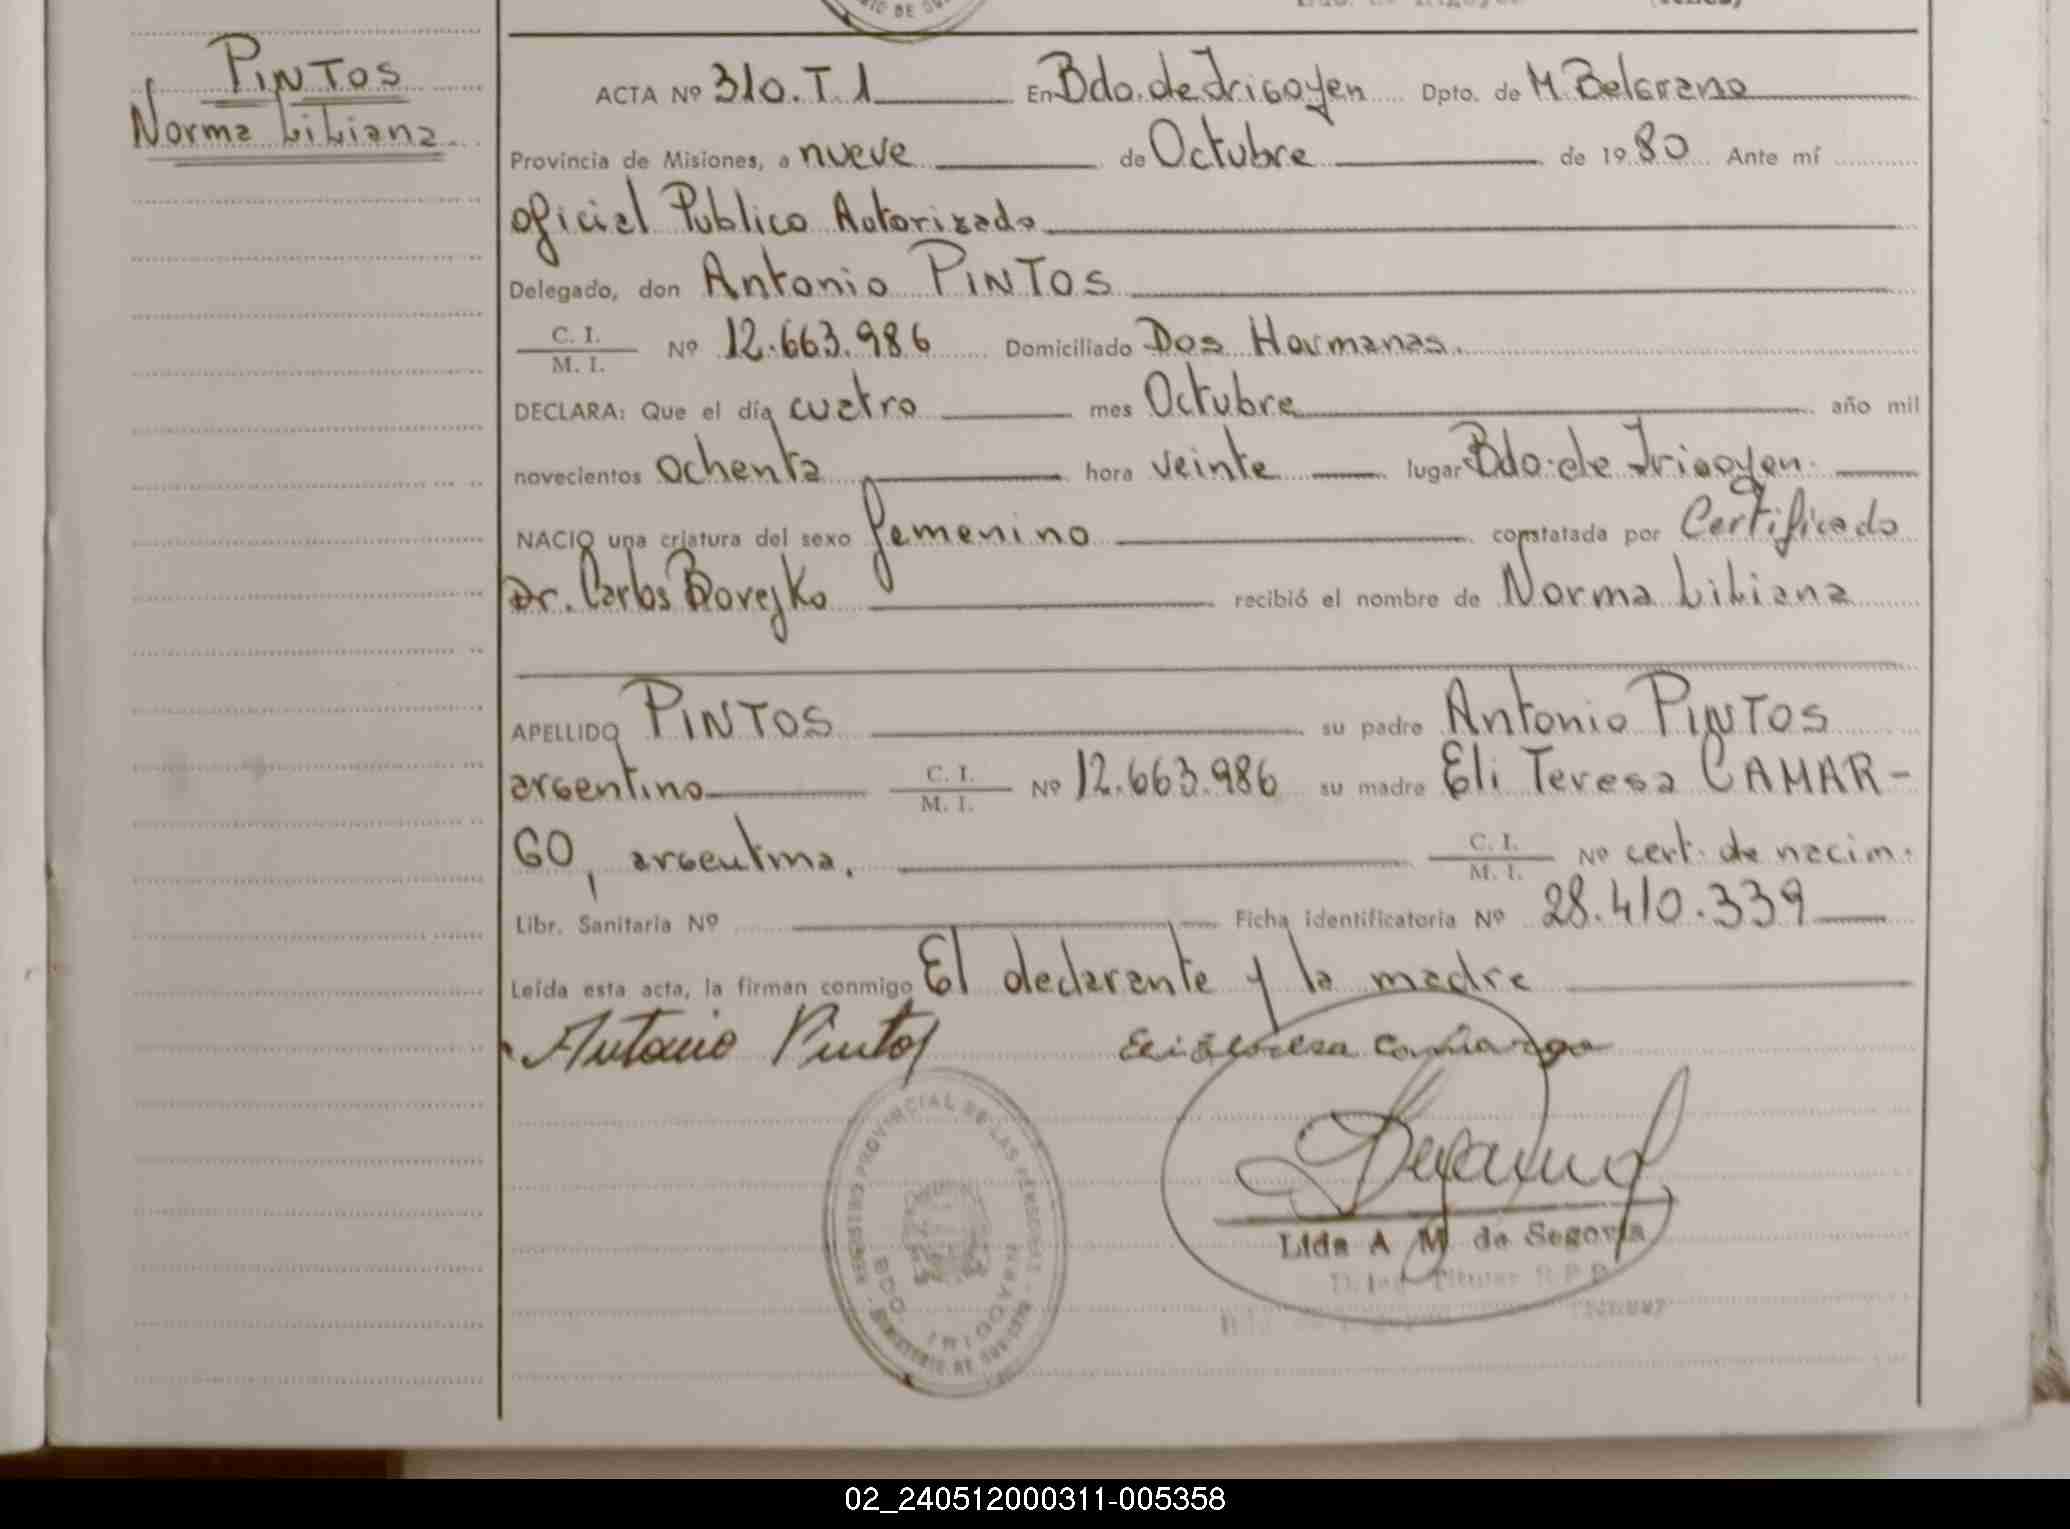 PINTOS
Norma Liliana
ACTA Nº 310. T. 1 En Bdo. de Irigoyen Dpto. de M. Belgrano
Provincia de Misiones, a nueve de Octubre de 1980 Ante mí
oficial Publico Autorizado
Delegado, don Antonio PINTOS
C. I. / M. I. Nº 12.663.986 Domiciliado Dos Hermanas.
DECLARA: Que el día cuatro mes Octubre año mil
novecientos ochenta hora veinte lugar Bdo. de Irigoyen.
NACIO una criatura del sexo femenino constatada por Certificado
Dr. Carlos Boreyko recibió el nombre de Norma Liliana
APELLIDO PINTOS su padre Antonio PINTOS
argentino C. I. / M. I. Nº 12.663.986 su madre Eli Teresa CAMAR-
GO, argentina. C. I. / M. I. Nº cert. de nacim.
Libr. Sanitaria Nº Ficha identificatoria Nº 28.410.339
Leída esta acta, la firman conmigo El declarante y la madre
Antonio Pintos Eli Teresa Camargo
REGISTRO PROVINCIAL DE LAS PERSONAS
BDO. IRIGOYEN
MINISTERIO DE GOBIERNO
Lida A. M. de Segovia
02_240512000311-005358